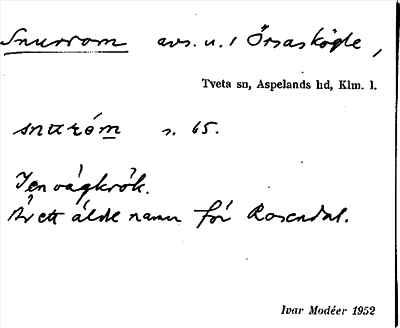 Snurrom avs. u. i Örsaskögle,
Tveta sn, Aspelands hd, Klm. l.
snurόm s. 65.
I en vägkrök.
Är ett äldre namn för Rosendal.
Ivar Modéer 1952